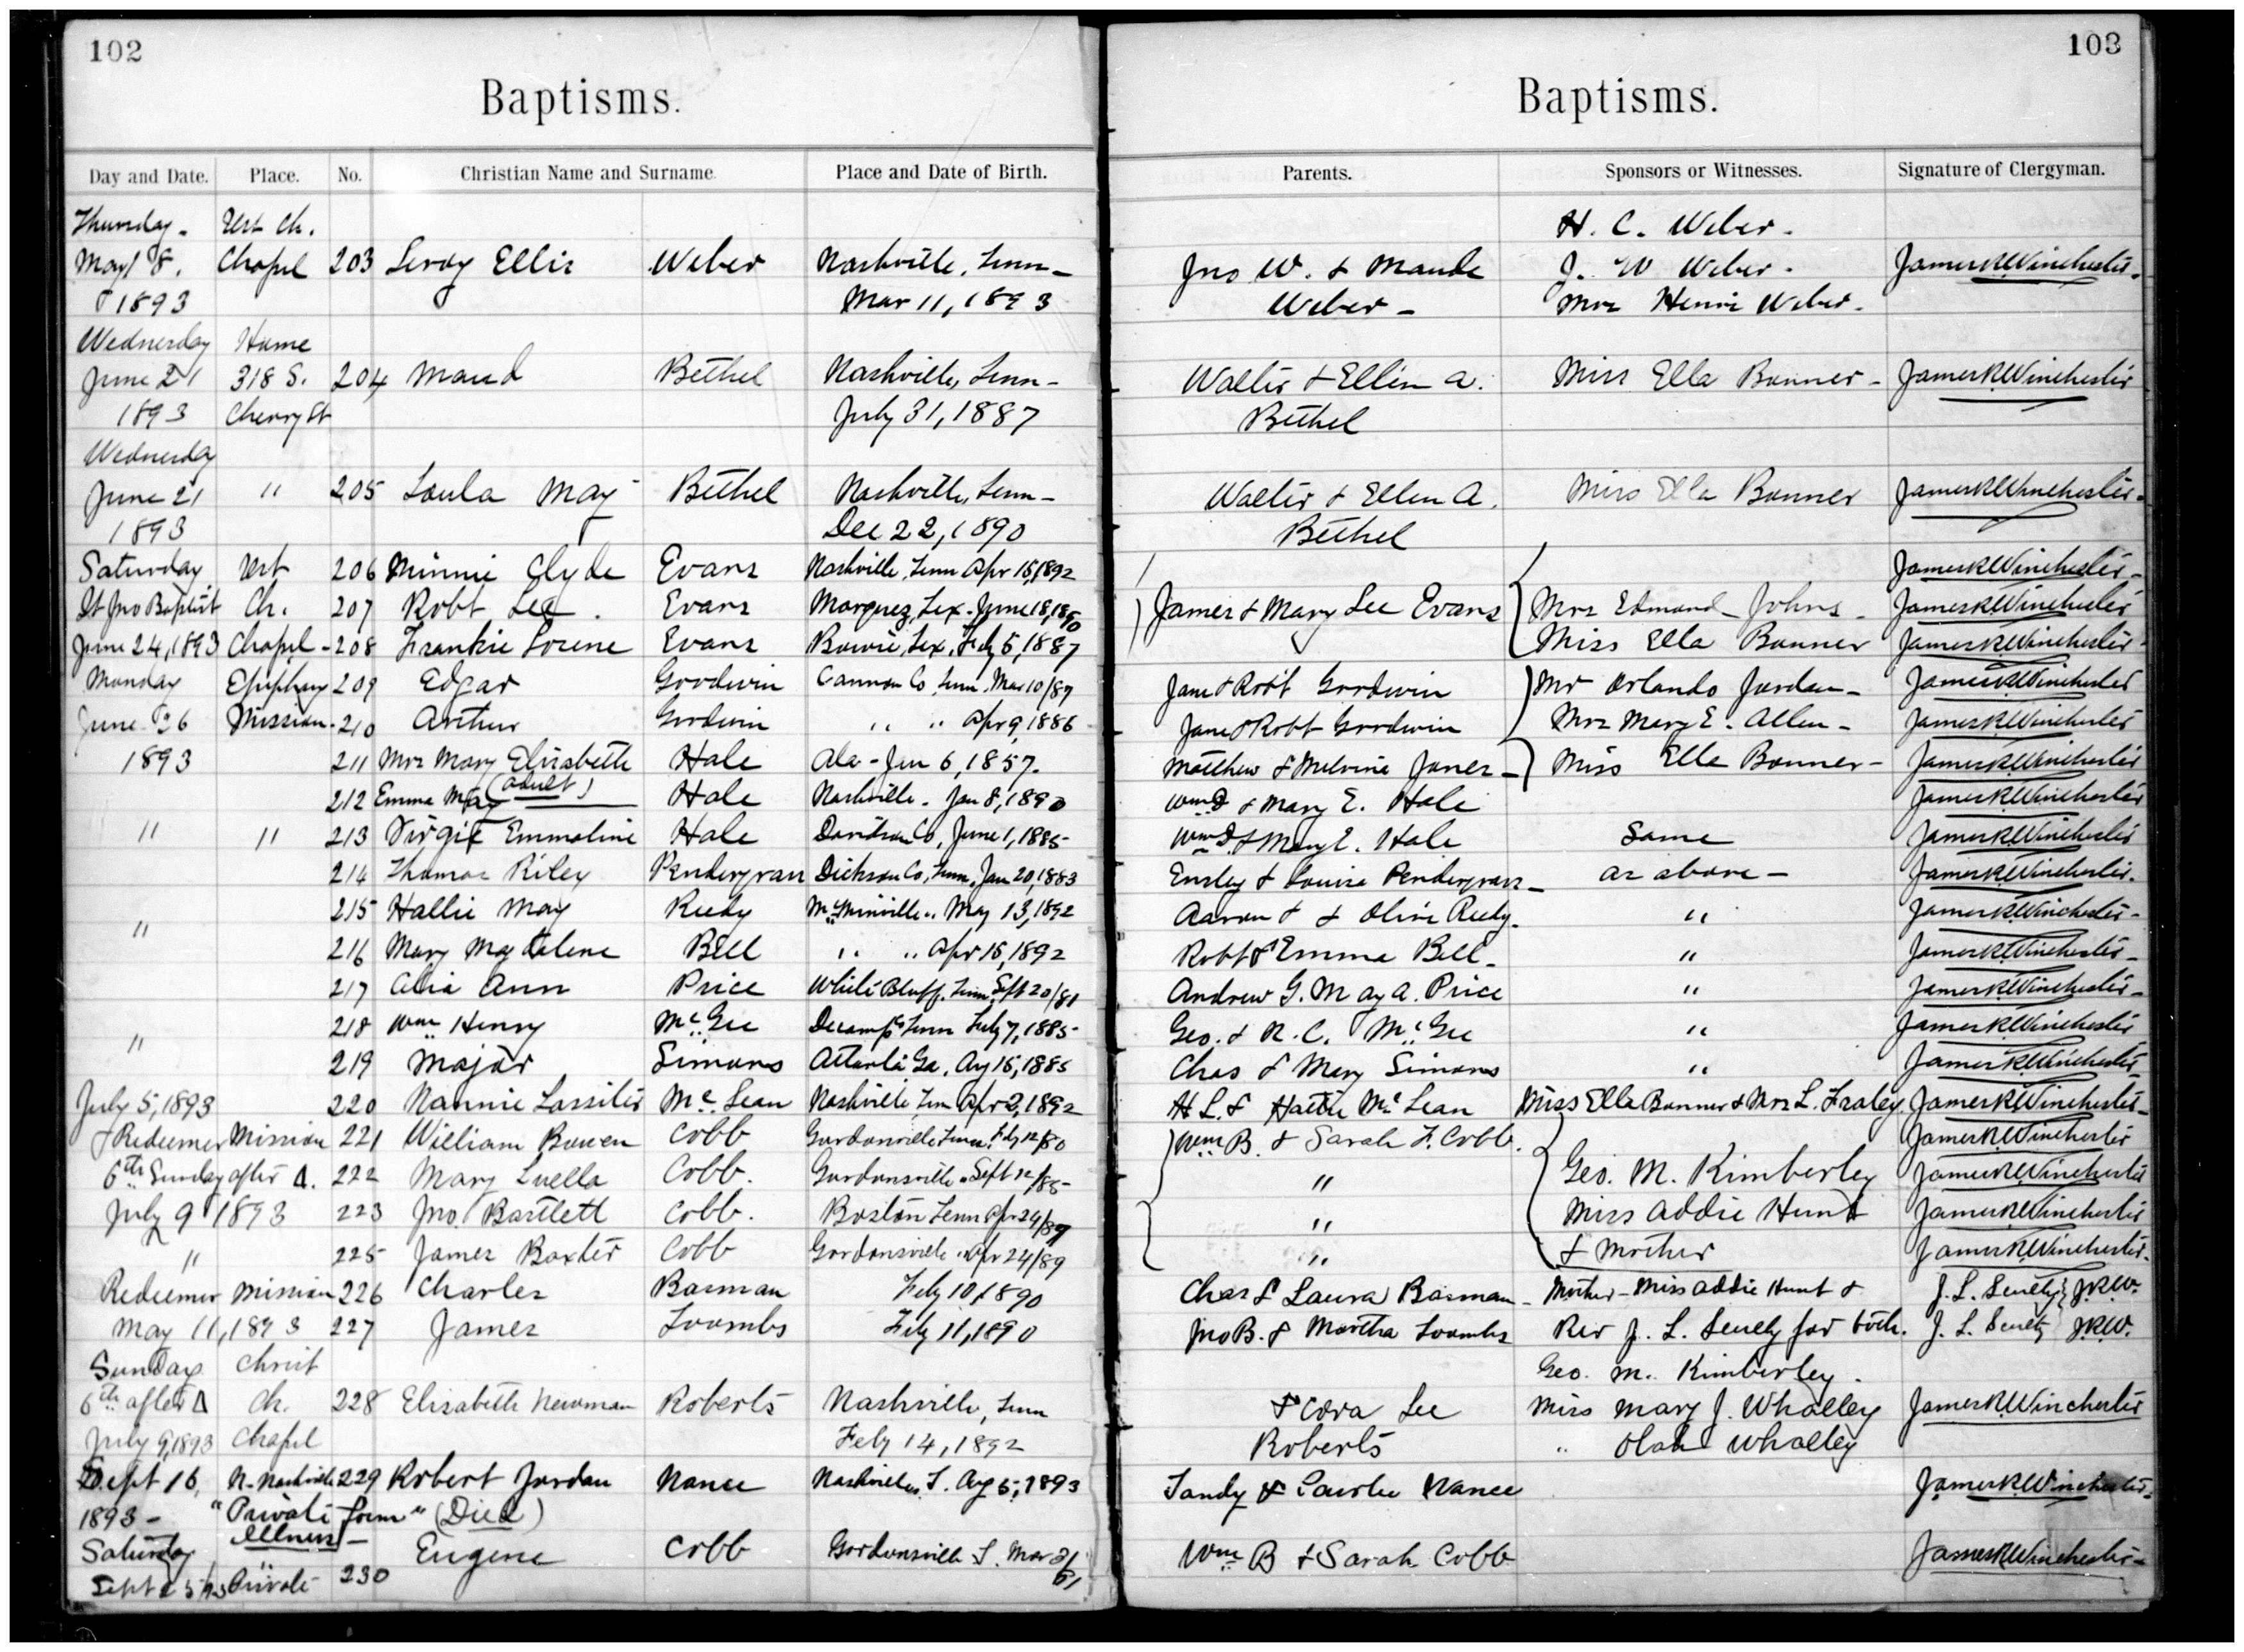 102
Baptisms.
Day and Date. Place. No. Christian Name and Surname. Place and Date of Birth.
Thursday - Ch.
May 18, Chapel 203 Leroy Ellis Weber Nashville, Tenn -
1893 Mar 11, 1893
Wednesday Home
June 21 318 S. 204 Maud Bethel Nashville, Tenn -
1893 Cherry St July 31, 1887
Wednesday
June 21 " 205 Loula May Bethel Nashville, Tenn -
1893 Dec 22, 1890
Saturday 206 Minnie Clyde Evans Nashville, Tenn Apr 15, 1892
St Jno Baptist Ch. 207 Robt Lee Evans Marquez, Tex. June 18, 1890
June 24, 1893 Chapel - 208 Frankie Lorene Evans Bowie, Tex. Feby 5, 1887
Monday Epiphany 209 Edgar Goodwin Cannon Co, Tenn, Mar 10/87
June 26 Mission - 210 Arthur Goodwin " " Apr 9, 1886
1893 211 Mrs Mary Elisabeth Hale Ala - Jan 6, 1857.
(adult)
212 Emma May Hale Nashville - Jan 8, 1890
" " 213 Virgie Emmaline Hale Davidson Co, June 1, 1885
214 Thomas Riley Pendergrass Dickson Co, Tenn, Jan 20, 1883
" 215 Hallie May Reedy McMinville " May 13, 1892
216 Mary Magdalene Bell " " Apr 16, 1892
217 Ann Price White Bluff, Tenn, Sept 20/81
" 218 Wm Henry McGee Tenn Feby 7, 1885
219 Major Simons Atlanta Ga, Aug 15, 1885
July 5, 1893 220 Nannie Lassiter McLean Nashville Tenn Apr 2, 1892
Redeemer Mission 221 William Bowen Cobb Gordonsville Tenn. Feby 12/80
6th Sunday after Δ. 222 Mary Luella Cobb. Gordonsville " Sept 12/85
July 9 1893 223 Jno. Bartlett Cobb. Boston Tenn Apr 24/87
" 225 James Baxter Cobb Gordonsville " Apr 24/89
Redeemer Mission 226 Charles Basman Feby 10, 1890
May 11, 1893 227 James Toombs Feby 11, 1890
Sunday Christ
6th after Δ Ch. 228 Elisabeth Newman Roberts Nashville, Tenn
July 9, 1893 Chapel Feby 14, 1892
Sept 16, N. Nashville 229 Robert Jordan Nance Nashville, T. Aug 5, 1893
1893 - "Private form" (Died)
Saturday illness - Eugene Cobb Gordonsville T. Mar
Sept Private 230
103
Baptisms.
Parents. Sponsors or Witnesses. Signature of Clergyman.
H. C. Weber.
Jno W. & Maude J. W Weber. James R. Winchester.
Weber - Mrs Henri Weber.
Walter & Ellen A. Miss Ella Bonner - James R. Winchester
Bethel
Walter & Ellen A. Miss Ella Bonner James R. Winchester
Bethel
James R. Winchester
James & Mary Lee Evans Mrs Edmond Johns - James R. Winchester
Miss Ella Bonner James R. Winchester
Jane & Robt Goodwin Mr Orlando Jordan - James R. Winchester
Jane & Robt Goodwin Mrs Mary E. Allen - James R. Winchester
Matthew & Melvina Jones - Miss Ella Bonner - James R. Winchester
Wm & Mary E. Hale James R. Winchester
Wm & Mary E. Hale Same James R. Winchester
Ensley & Louisa Pendergrass - as above - James R. Winchester
Aaron & & Olive Reedy. " James R. Winchester
Robt & Emma Bell - " James R. Winchester
Andrew G. May A. Price " James R. Winchester
Geo. & R. C. McGee " James R. Winchester
Chas & Mary Simons " James R. Winchester
H L. & Hattie McLean Miss Ella Bonner & Mrs L. Fraley James R. Winchester
Wm B. & Sarah F. Cobb. James R. Winchester
" Geo. M. Kimberley James R. Winchester
" Miss Addie Hunt James R. Winchester
" & Mother James R. Winchester
Chas & Laura Basman - Mother - Miss Addie Hunt & J. L. J.R.W.
Jno B. & Martha Toombs Rev J. L. for both. J. L. J.R.W.
Geo. M. Kimberley.
& Cora Lee Miss Mary J. Whalley James R. Winchester
Roberts " Olah Whalley
Tandy & Nance James R. Winchester
Wm B & Sarah Cobb James R. Winchester